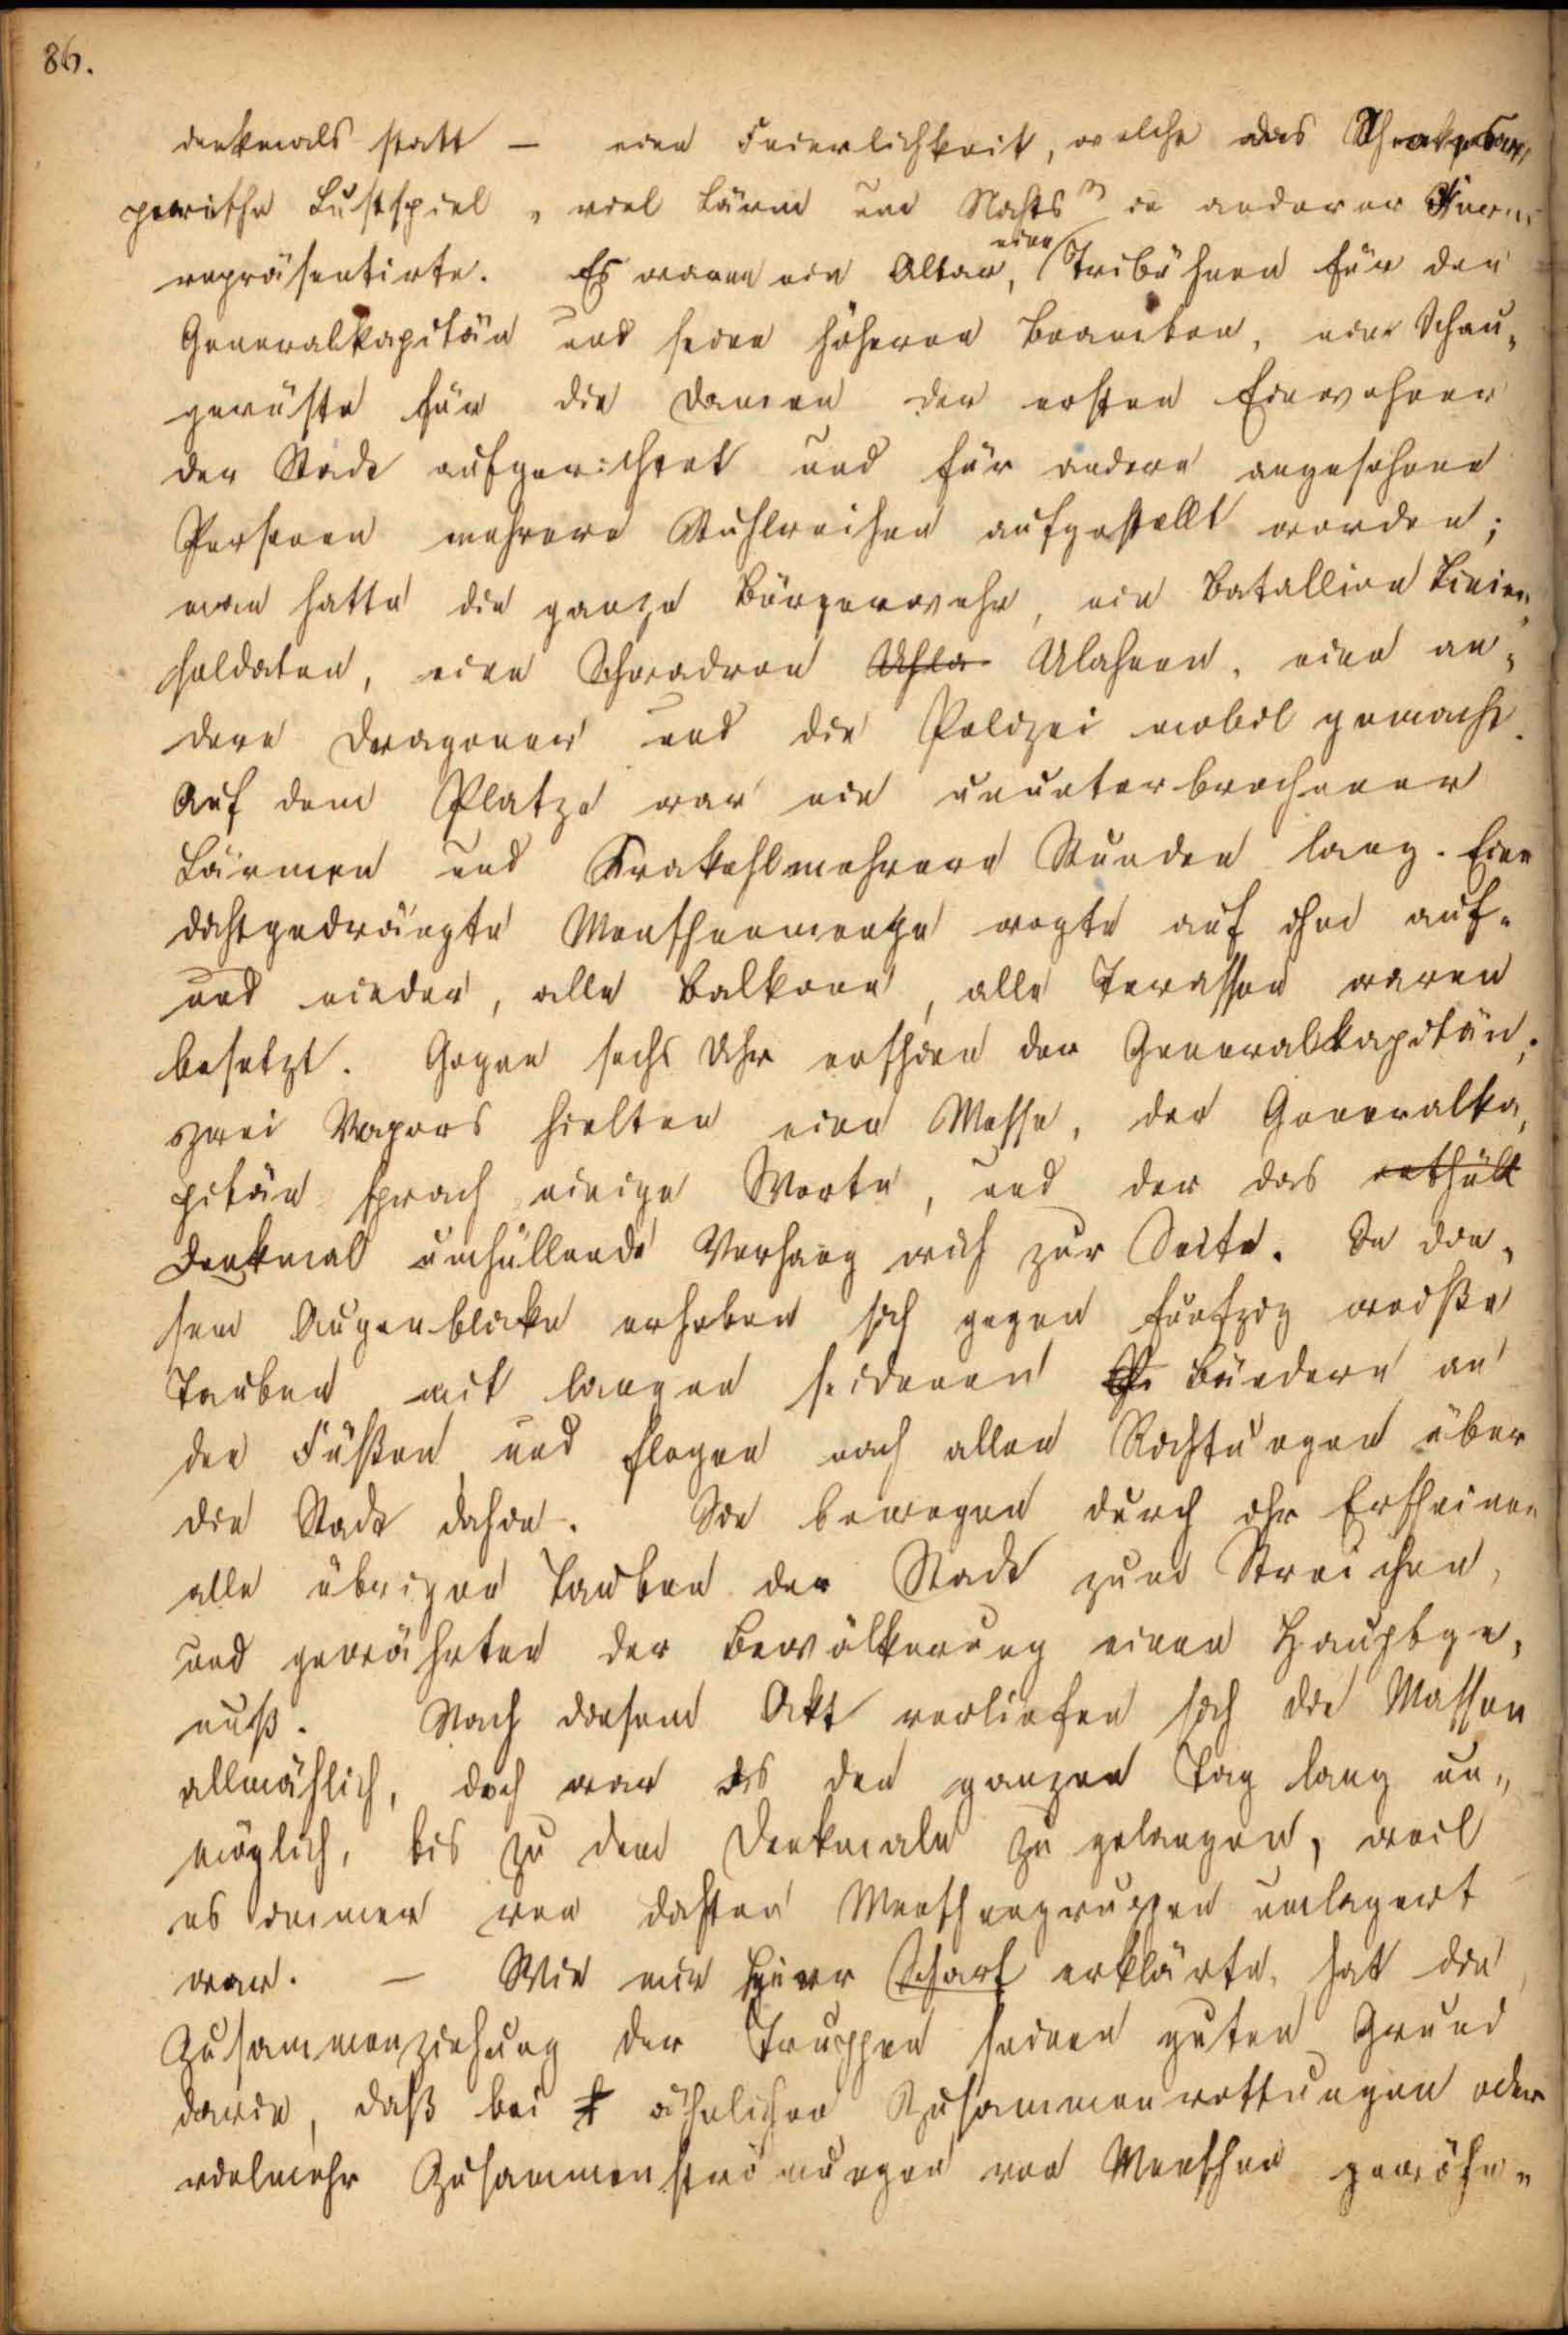 86.
denkmals statt – eine Feierlichkeit, welche das Shakespear,
pearische Lustspiel „viel Lärm um Nichts" in anderer Form
repräsentirte. Es waren ein Altar, eine Tribühne für den
Generalkapitän und seine höheren Beamten, eine Schau-
gerüste für die Damen der ersten Einwohner
der Stadt aufgerichtet und für andere angesehene
Personen mehrere Stuhlreihen aufgestellt worden;
man hatte die ganze Bürgerwehr, ein Batallion Linien-
soldaten, eine Schwadron Uhla Ulahnen, eine an-
dere Dragoner und die Polizei mobil gemacht.
Auf dem Platze war ein ununterbrochener
Lärmen und Krakehl mehrere Stunden lang. Eine
dichtgedrängte Menschenmenge wogte auf ihm auf-
und nieder, alle Balkone, alle Terassen waren
besetzt. Gegen sechs Uhr erschien der Generalkapitän;
zwei hielten eine Messe, der Generalka-
pitän sprach einige Worte, und der das enthüllt
Denkmal umhüllende Vorhang wich zur Seite. In die-
sem Augenblicke erhoben sich gegen funfzig weiße
Tauben mit langen seidenen Bändern an
den Füßen und flogen nach allen Richtungen über
die Stadt dahin. Sie bewogen durch ihr Erscheinen
alle übrigen Tauben der Stadt zum Streichen,
und gewährten der Bevölkerung einen Hauptge-
nuß. Nach diesem Akt verliefen sich die Massen
allmählich, doch war es den ganzen Tag lang un-
möglich, bis zu dem Denkmale zu gelangen, weil
es immer von dichten Menschengruppen umlagert
war. – Wie mir Herr Scharf erklärte, hat die
Zusammenziehung der Truppen seinen guten Grund
darin, daß bei ähnlichen Zusammenrottungen oder
vielmehr Zusammenströmungen von Menschen gewöhn-